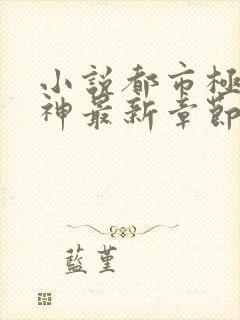 小說都市極
神最新章節
藍堇